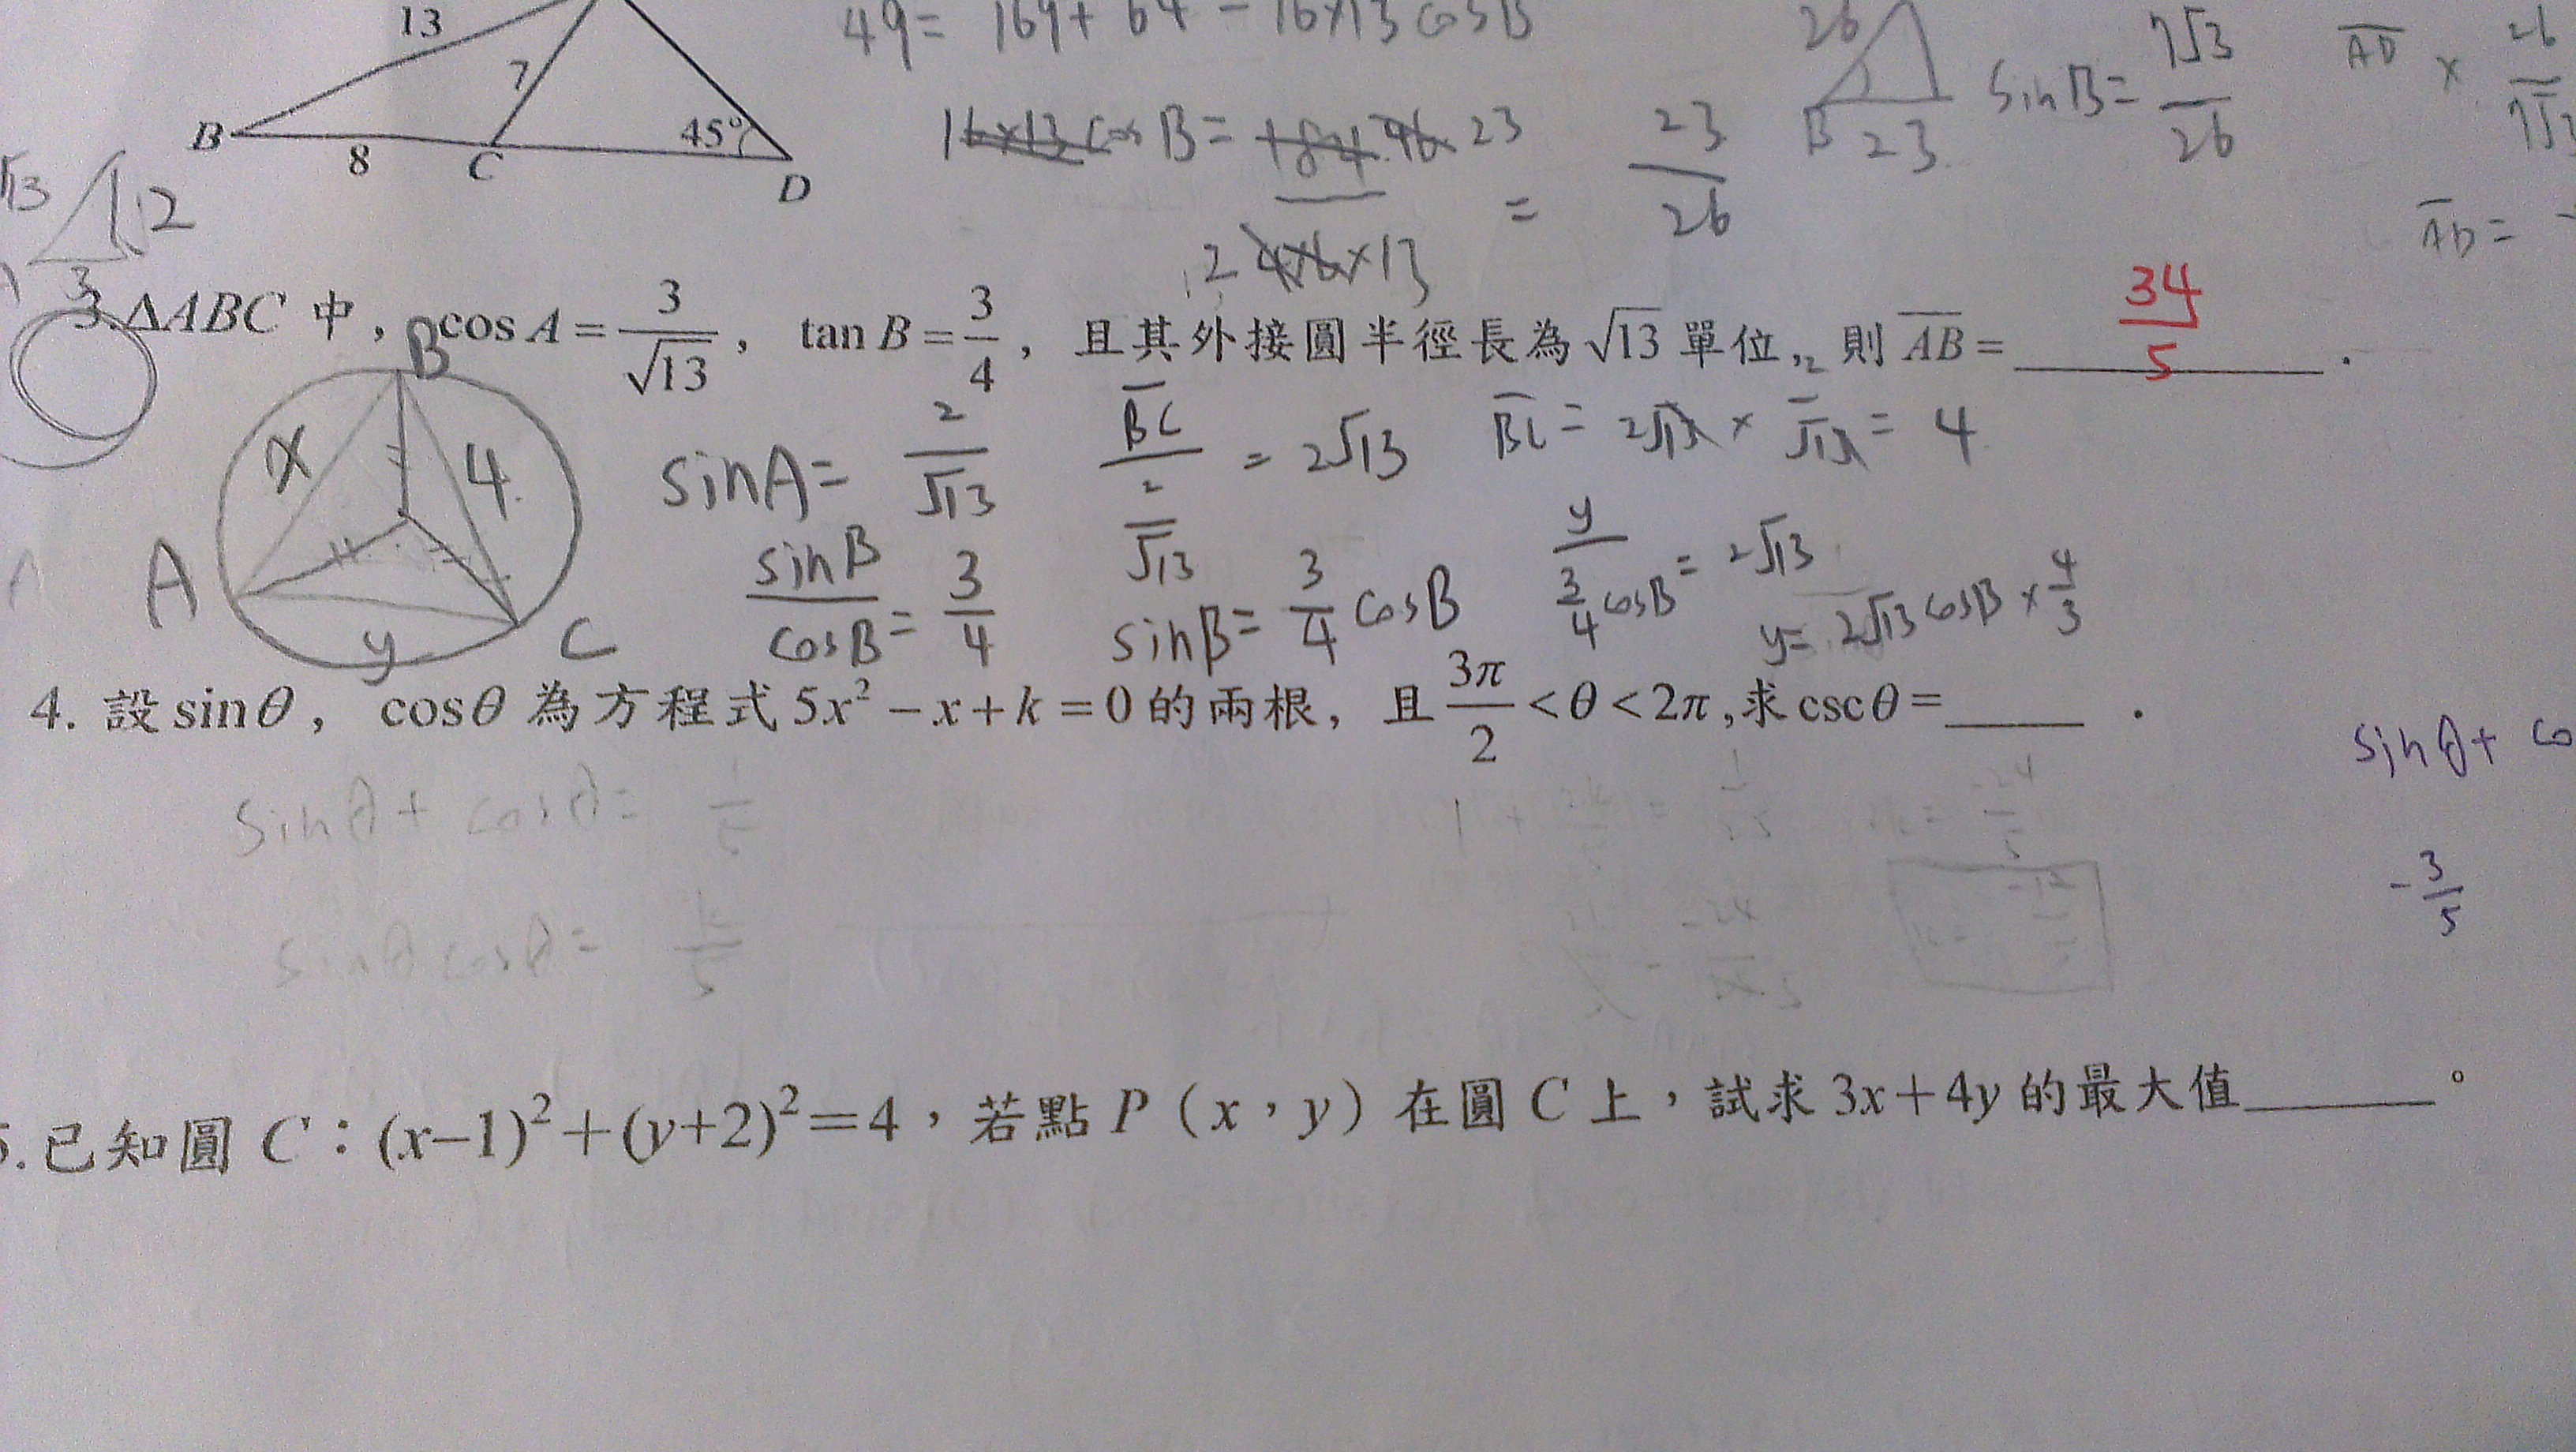 13
7
B
8
C
45°
D
49 = 169 + 64 - 16×13 cosB
16×13 cos B = 23
= 23/26
2 ×13
26
B 23
sin B = 7√3/26
AD × 26/7√3
AD =
√13
2
3
3. ΔABC 中， cos A = 3/√13 ， tan B = 3/4 ， 且其外接圓半徑長為 √13 單位， 則 AB = 34/5 .
B
x
4
A
y
C
sinA = 2/√13
BC/(2/√13) = 2√13
BC = 2√13 × 2/√13 = 4
sinB/cosB = 3/4
sinB = 3/4 cosB
y/(3/4 cosB) = 2√13
y = 2√13 cosB × 4/3
4. 設 sinθ ， cosθ 為方程式 5x² − x + k = 0 的兩根， 且 3π/2 < θ < 2π ,求 cscθ = ______ .
sinθ + cosθ = 1/5
sinθ cosθ = k/5
sinθ + co
-3/5
.已知圓 C：(x–1)²＋(y+2)²＝4，若點 P（x，y）在圓 C 上，試求 3x＋4y 的最大值______。